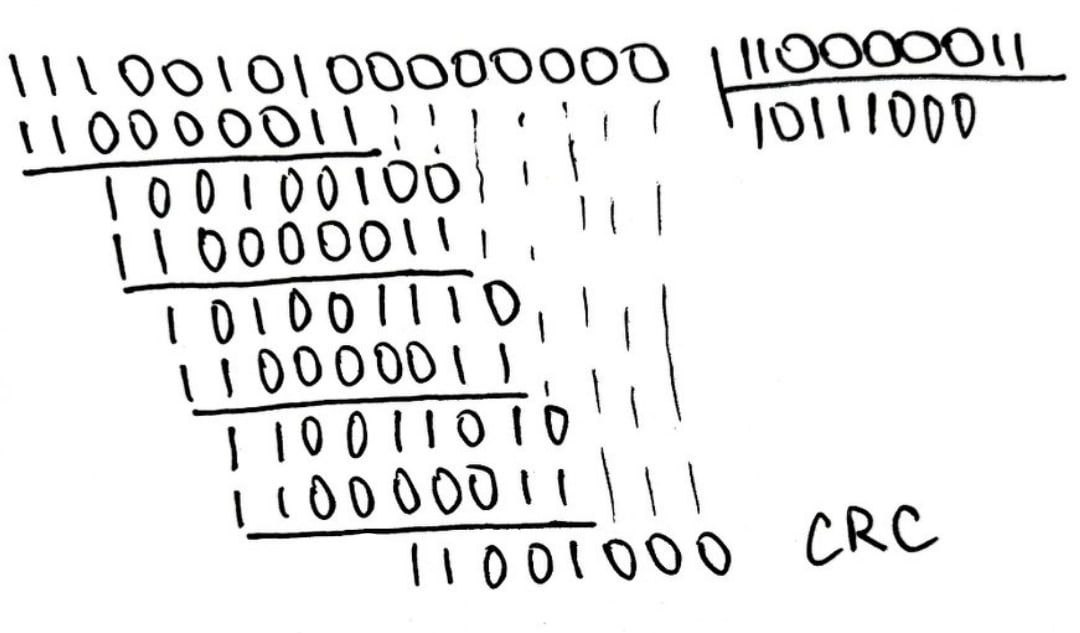 1110010100000000 110000011
110000011 10111000
100100100
110000011
101001110
110000011
110011010
110000011
11001000 CRC